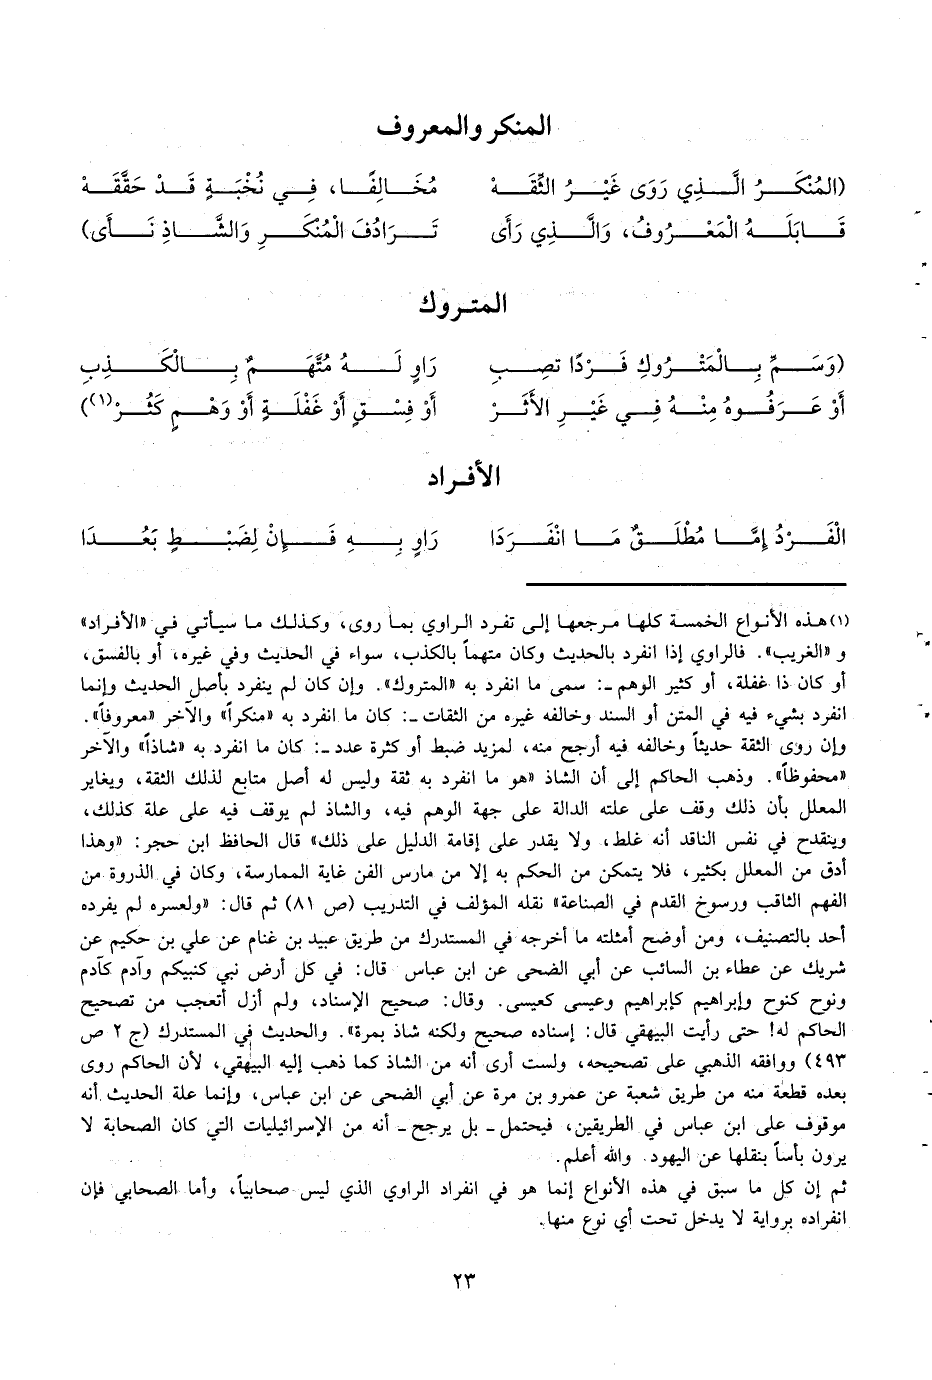 المنكر والمعروف
(المُنْكَرُ الَّذِي رَوَى غَيْرُ الثِّقَهْ مُخَالِفًا، فِي نُخْبَةٍ قَدْ حَقَّقَهْ
قَابَلَهُ الْمَعْرُوفُ، وَالَّذِي رَأَى تَرَادُفَ الْمُنْكَرِ وَالشَّاذِ نَأَى)
المتروك
(وَسَمِّ بِالْمَتْرُوكِ فَرْدًا تصِبِ رَاوٍ لَهُ مُتَّهَمٌ بِالْكَذِبِ
أَوْ عَرَفُوهُ مِنْهُ فِي غَيْرِ الأَثَرْ أَوْ فِسْقٍ أَوْ غَفْلَةٍ أَوْ وَهْمٍ كَثُرْ(١))
الأفراد
الْفَرْدُ إِمَّا مُطْلَقٌ مَا انْفَرَدَا رَاوٍ بِهِ فَإِنْ لِضَبْطٍ بَعُدَا
(١) هذه الأنواع الخمسة كلها مرجعها إلى تفرد الراوي بما روى، وكذلك ما سيأتي في «الأفراد»
و «الغريب». فالراوي إذا انفرد بالحديث وكان متهماً بالكذب، سواء في الحديث وفي غيره، أو بالفسق،
أو كان ذا غفلة، أو كثير الوهم ـ: سمى ما انفرد به «المتروك». وإن كان لم ينفرد بأصل الحديث وإنما
انفرد بشيء فيه في المتن أو السند وخالفه غيره من الثقات ـ: كان ما انفرد به «منكراً» والآخر «معروفاً».
وإن روى الثقة حديثاً وخالفه فيه أرجح منه، لمزيد ضبط أو كثرة عدد ـ: كان ما انفرد به «شاذاً» والآخر
«محفوظاً». وذهب الحاكم إلى أن الشاذ «هو ما انفرد به ثقة وليس له أصل متابع لذلك الثقة، ويغاير
المعلل بأن ذلك وقف على علته الدالة على جهة الوهم فيه، والشاذ لم يوقف فيه على علة كذلك،
وينقدح في نفس الناقد أنه غلط، ولا يقدر على إقامة الدليل على ذلك» قال الحافظ ابن حجر: «وهذا
أدق من المعلل بكثير، فلا يتمكن من الحكم به إلا من مارس الفن غاية الممارسة، وكان في الذروة من
الفهم الثاقب ورسوخ القدم في الصناعة» نقله المؤلف في التدريب (ص ٨١) ثم قال: «ولعسره لم يفرده
أحد بالتصنيف، ومن أوضح أمثلته ما أخرجه في المستدرك من طريق عبيد بن غنام عن علي بن حكيم عن
شريك عن عطاء بن السائب عن أبي الضحى عن ابن عباس قال: في كل أرض نبي كنبيكم وآدم كآدم
ونوح كنوح وإبراهيم كإبراهيم وعيسى كعيسى. وقال: صحيح الإسناد، ولم أزل أتعجب من تصحيح
الحاكم له! حتى رأيت البيهقي قال: إسناده صحيح ولكنه شاذ بمرة». والحديث في المستدرك (ج ٢ ص
٤٩٣) ووافقه الذهبي على تصحيحه، ولست أرى أنه من الشاذ كما ذهب إليه البيهقي، لأن الحاكم روى
بعده قطعة منه من طريق شعبة عن عمرو بن مرة عن أبي الضحى عن ابن عباس، وإنما علة الحديث أنه
موقوف على ابن عباس في الطريقين، فيحتمل ـ بل يرجح ـ أنه من الإسرائيليات التي كان الصحابة لا
يرون بأساً بنقلها عن اليهود. والله أعلم.
ثم إن كل ما سبق في هذه الأنواع إنما هو في انفراد الراوي الذي ليس صحابياً، وأما الصحابي فإن
انفراده برواية لا يدخل تحت أي نوع منها.
٢٣